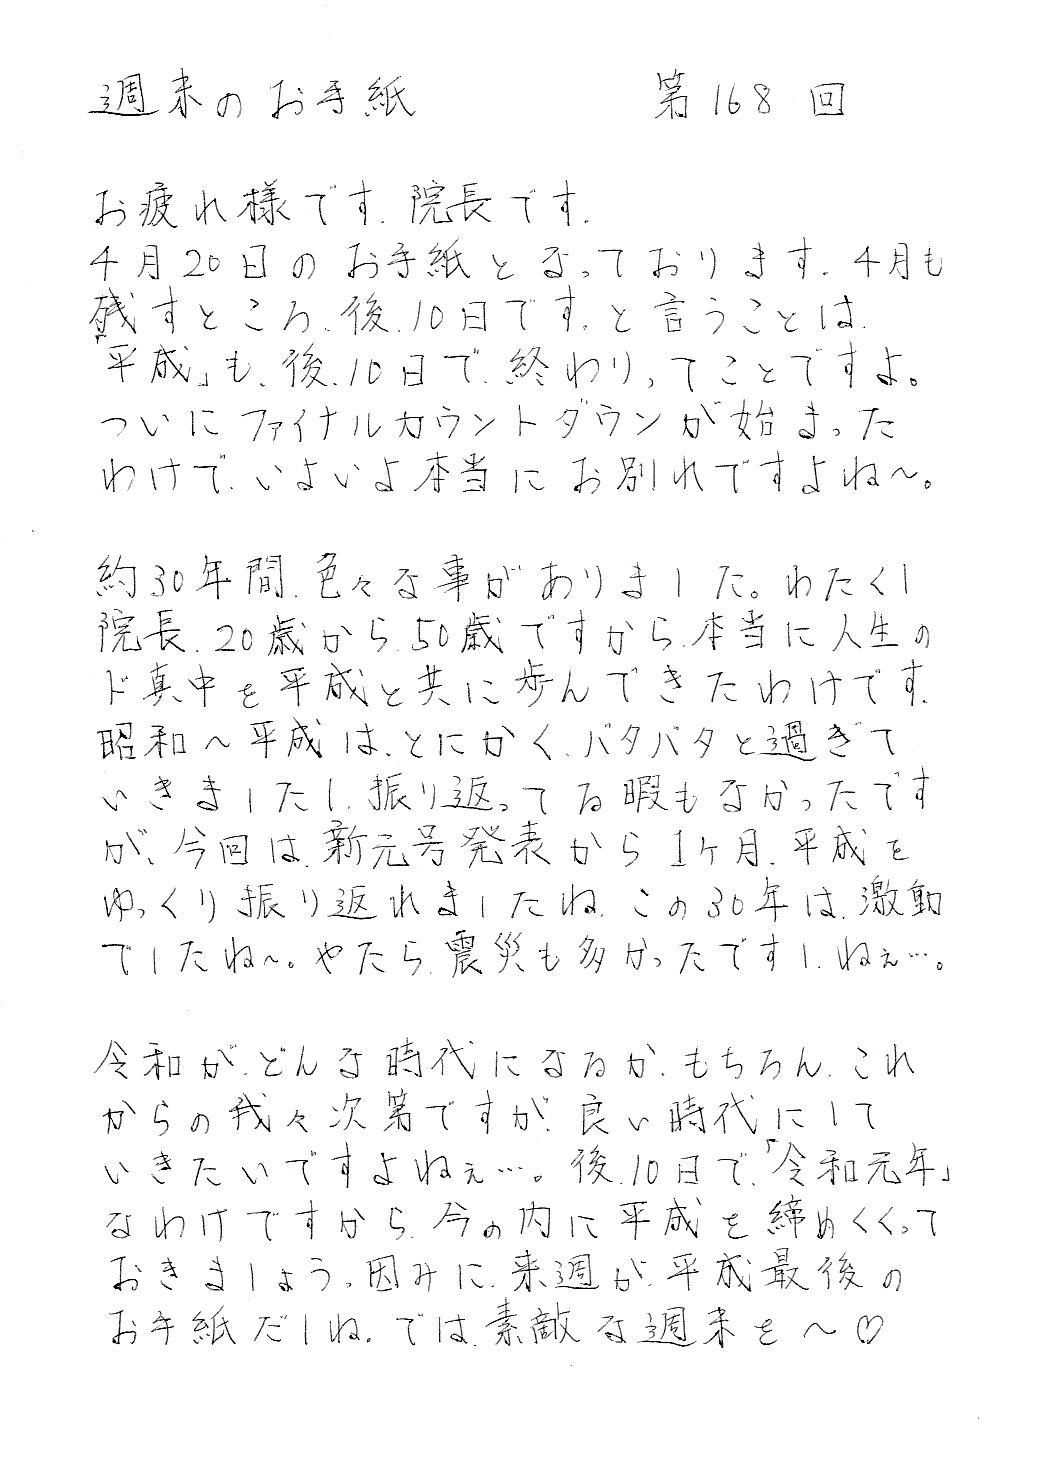 週末のお手紙 第168回
お疲れ様です.院長です.
4月20日のお手紙となっております.4月も
残すところ、後、10日です.と言うことは、
「平成」も、後、10日で、終わりってことですよ。
ついにファイナルカウントダウンが始まった
わけで、いよいよ本当にお別れですよね〜。
約30年間、色々な事がありました。わたくし
院長、20歳から、50歳ですから、本当に人生の
ド真中を平成と共に歩んできたわけです.
昭和〜平成は、とにかく、バタバタと過ぎて
いきましたし、振り返ってる暇もなかったです
が、今回は、新元号発表から1ヶ月、平成を
ゆっくり振り返れましたね.この30年は、激動
でしたね〜。やたら、震災も多かったですし、ねぇ…。
令和が、どんな時代になるか、もちろん、これ
からの我々次第ですが、良い時代にして
いきたいですよねぇ…。後、10日で、「令和元年」
なわけですから、今の内に平成を締めくくって
おきましょう。因みに、来週が、平成最後の
お手紙だしね.では、素敵な週末を〜♡